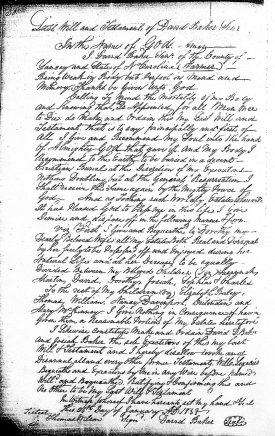 Last Will and Testament of David Baker Senr
In the Name of GOD. Amen
I David Baker Senr of the County of
Yancey and State of N Carolina (Farmer)
Being Weak in Body but Perfect in Mind and
Memory. Thanks be given unto God
Calling to Mind the Mortality of my Body
and Knowing that it is Appointed for all Men Once
to Die do Make and Ordain this My Last Will and
Testament, that is to say principally and first of
all I give and Recommend My Soul into the hand
of Almighty GOD that gave it and My Body I
Recommend to the Earth, to be buried in a decent
Christian Burial at the Discretion of my Executors
Nothing Doubting but at the General Resurrection I
Shall receive the Same again by the Mighty Power of
God. And as touching such Worldly Estate wherewith
it has Pleased God to bless me in this life, I give
Demise and dispose of in the following Manner & form
First, I give and Bequeath to Dorothy my
Dearly beloved Wife all my Estate both Real and Personal
by her to be Possessed and Enjoyed during her
Natural Life and at her Decease to be equally
Divided Between my Beloved Children
Martin, David, Dorothy, Josiah, Sophia & Charles
To the rest of my Children, Elizabeth Bailey
Thomas, William, Nancy Davenport,
Mary McKinney I give Nothing in Consequence of having
given them a Reasonable Portion of My Estate heretofore
I likewise Constitute Make and Ordain David Baker
and Josiah Baker the sole Executors of this my last
Will & Testament and I hereby disallow revoke and
Disannul all and every other former Testaments, Wills, Legacies
Bequests and Executors by me in any wise before Named
Willed and Bequeathed, Ratifying & Confirming this and
No Other to be my Last Will & Testament
In Witness Whereof I have hereunto set my hand & seal
this day of January AD 1838
Testes
Thomas Wilson Sign David Baker (Seal)